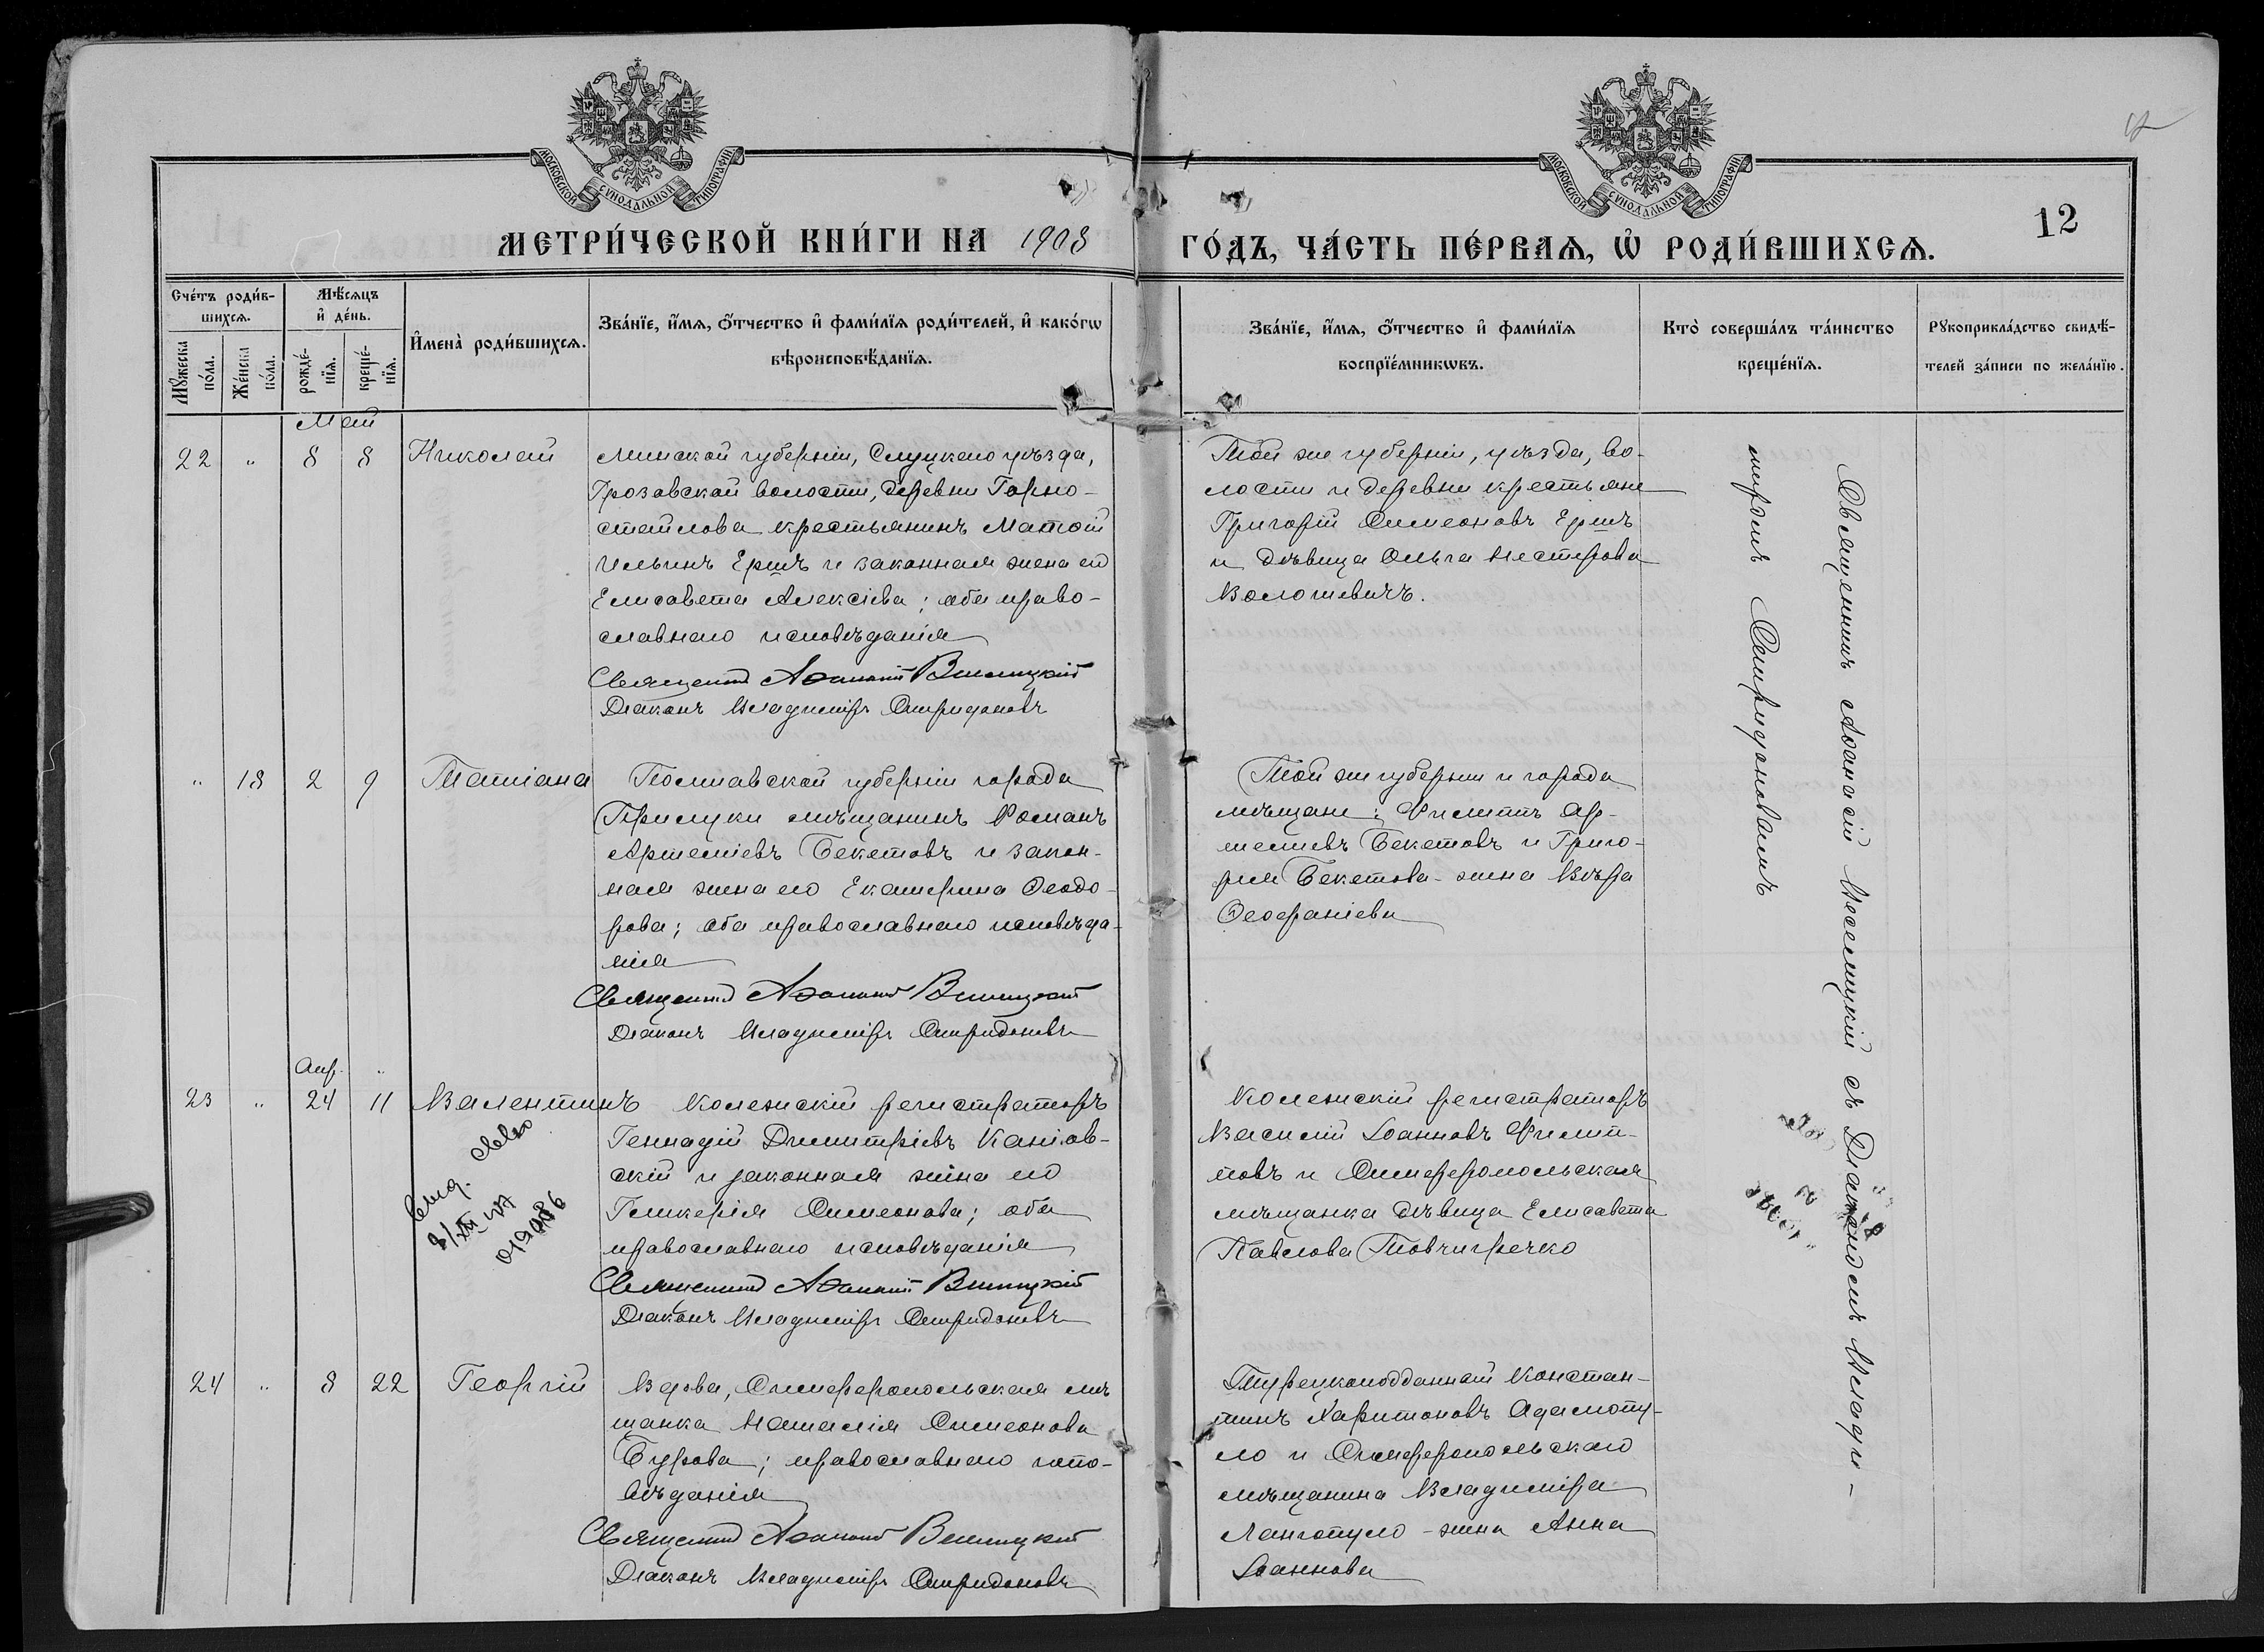 МОСКОВСКОЙ СУНОДАЛЬНОЙ ТИПОГРАФІИ
МОСКОВСКОЙ СУНОДАЛЬНОЙ ТИПОГРАФІИ
12
МЕТРИ́ЧЕСКОЙ КНИ́ГИ НА 1908
ГО́ДЪ, ЧА́СТЬ ПЕ́РВАЯ, Ѿ РОДИ́ВШИХСЯ.
Сче́тъ роди́в-
шихся.
Мѣ́сяцъ
и҆ де́нь.
Мꙋ́жеска
по́ла.
Же́нска
по́ла.
рожде́-
нїя.
креще́-
нїя.
И҆мена̀ роди́вшихся.
Зва́нїе, и҆́мя, ѻ҆́тчество и҆ фами́лїя роди́телей, и҆ како́гѡ
вѣроисповѣ́данїя.
Зва́нїе, и҆́мя, ѻ҆́тчество и҆ фами́лїя
воспрїе́мникѡвъ.
Кто̀ соверша́лъ та́инство
креще́нїя.
Рꙋкоприкла́дство свидѣ́-
телей за́писи по жела́нїю.
Май
22 " 8 8 Николай
Минской губерніи, Слуцкаго уѣзда,
Грозовской волости, деревни Горно-
стайлова крестьянинъ Матѳій
Ильинъ Ершъ и законная жена его
Елисавета Алексіева; оба право-
славнаго исповѣданія
Священникъ Аѳанасій Веселицкій
Діаконъ Владиміръ Спиридоновъ
Той же губерніи, уѣзда, во-
лости и деревни крестьяне
Григорій Симеоновъ Ершъ
и дѣвица Ольга Нестерова
Волошевичъ.
" 18 2 9 Татіана
Полтавской губерніи города
Прилуки мѣщанинъ Романъ
Артеміевъ Бекетовъ и закон-
ная жена его Екатерина Ѳеодо-
рова; оба православнаго исповѣда-
нія
Священникъ Аѳанасій Веселицкій
Діаконъ Владиміръ Спиридоновъ
Той же губерніи и города
мѣщане: Филиппъ Ар-
теміевъ Бекетовъ и Григо-
рія Бекетова - жена Вѣра
Ѳеофаніева
Апр. "
23 " 24 11 Валентинъ
Коллежскій регистраторъ
Геннадій Димитріевъ Каніов-
скій и законная жена его
Гликерія Симеонова; оба
православнаго исповѣданія
Священникъ Аѳанасій Веселицкій
Діаконъ Владиміръ Спиридоновъ
Коллежскій регистраторъ
Василій Іоанновъ Филип-
повъ и Симферопольская
мѣщанка дѣвица Елисавета
Павлова Товчигречко
24 " 8 22 Георгій
Вдова, Симферопольская мѣ
щанка Наталія Симеонова
Бурова; православнаго испо-
вѣданія
Священникъ Аѳанасій Веселицкій
Діаконъ Владиміръ Спиридоновъ
Турецкоподданный Констан-
тинъ Харитоновъ Адамопу-
ло и Симферопольскаго
мѣщанина Владиміра
Лангопуло - жена Анна
Іоаннова
Священникъ Аѳанасій Веселицкій съ Діакономъ Влади-
міромъ Спиридоновымъ